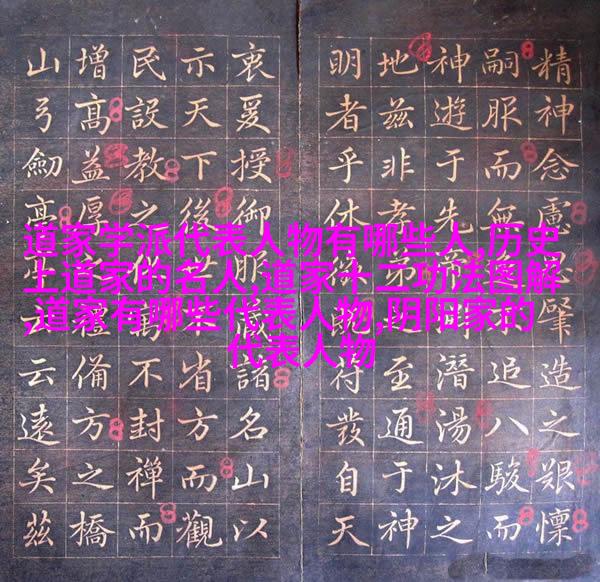 道家学派代表人物有哪些人,历史
上道家的名人,道家十二功法图解
,道家有哪些代表人物,阴阳家的
代表人物
精神念慮肇造之艱懍
嗣服而無追八駿而
神遊于先潛湯沐之
地茲非孝弟至通于神
明者乎休符發自天
衷爰授御服諸名山以
示天下後省方而觀
民設教之萬不封禪而
增高益厚禮備方之橋
山弓劍云遠矣茲